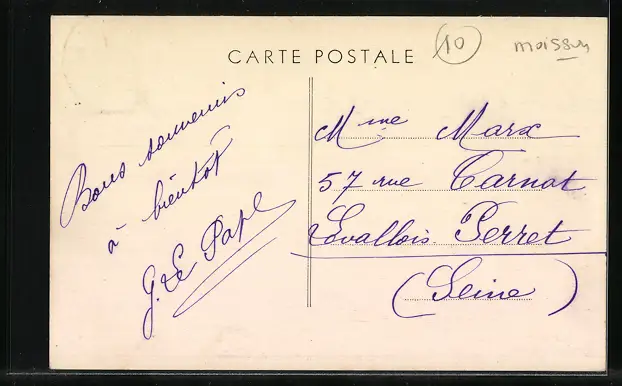 CARTE POSTALE
10
Bons souvenirs
à bientôt
G. Le Pape
Mme Marx
57 rue Carnot
Levallois-Perret
(Seine)